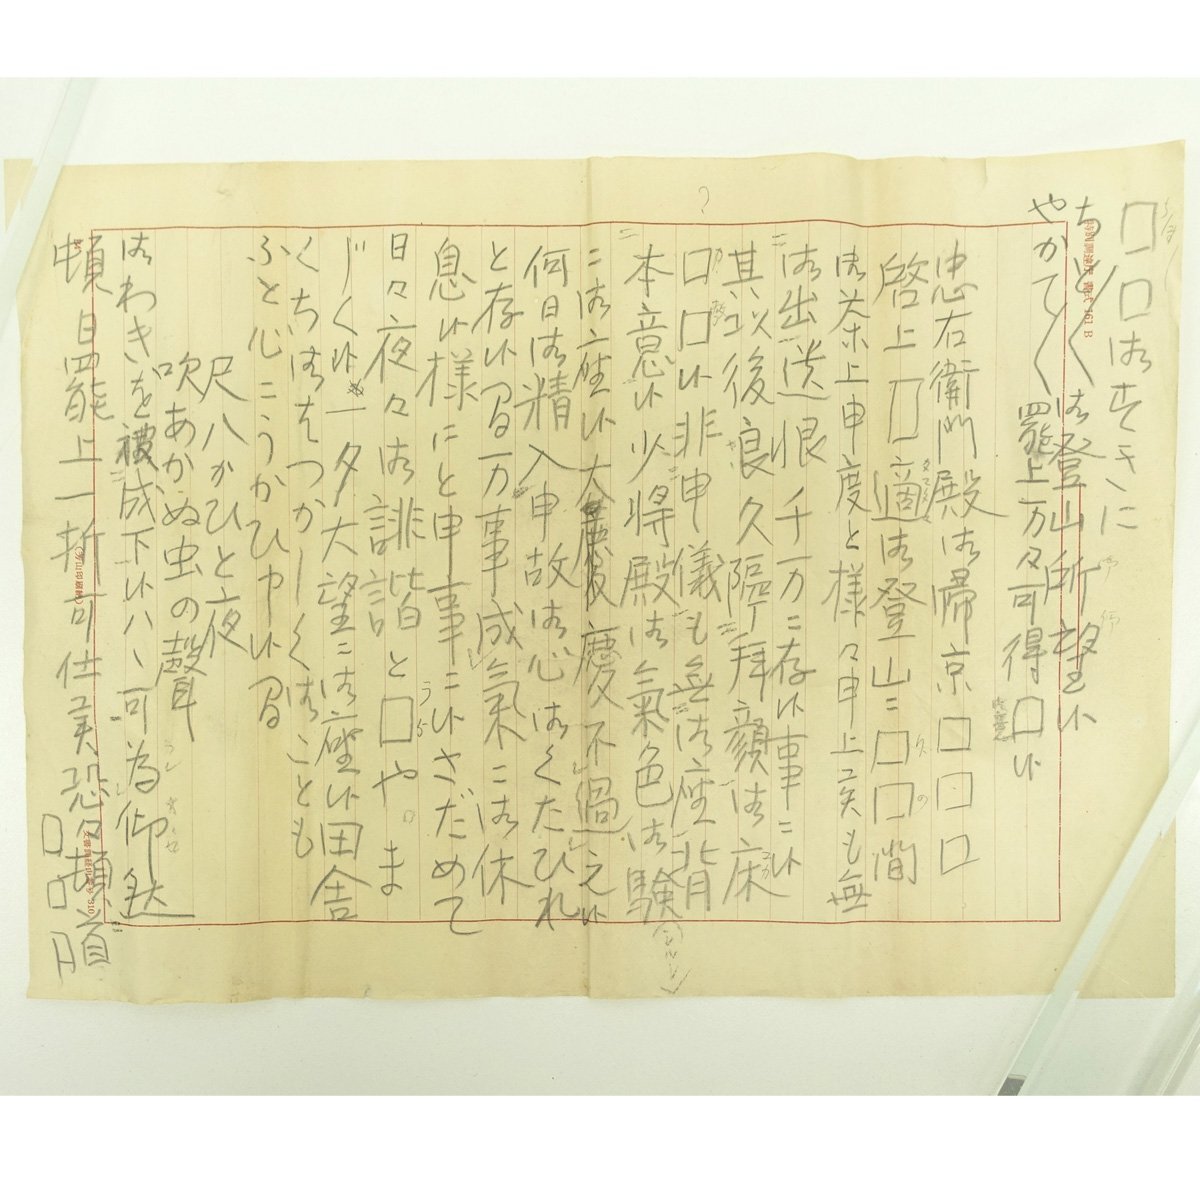 □□御すきに
ちと〳〵御登山所望ニ候
やかて〳〵罷上万々可得□候
忠右衛門殿御帰京□□□
啓上□適御登山ニ□□間
御茶上申度と様々申上候も無
御出遺恨千万ニ存候事ニ候
其以後良久隔拝顔御床
□□候非申儀も無御座背
本意候少将殿御氣色御験
ニ御座候大慶不過之候
何日御精入申故御心御くたひれ
と存候間万事成氣ニ御休
息候様にと申事ニ候さだめて
日々夜々御誹諧と□や ま
じく候一夕大望ニ御座候田舎
くち御はつかしく御ことも
ふと心にうかひ申候間
尺八かひと夜
吹あかぬ虫の聲
御わきを被成下候ハヽ可為仰
頓日罷上一折可仕候恐々頓首
□□月